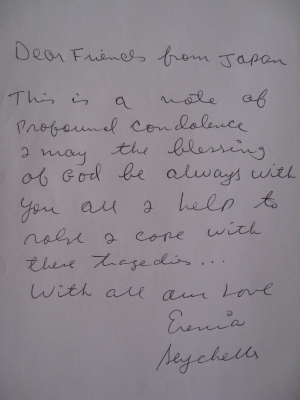 Dear Friends from Japan
This is a note of
profound condolence
& may the blessing
of God be always with
you all & help to
& cope with
these tragedies...
With all our Love
Erenia
Seychelles